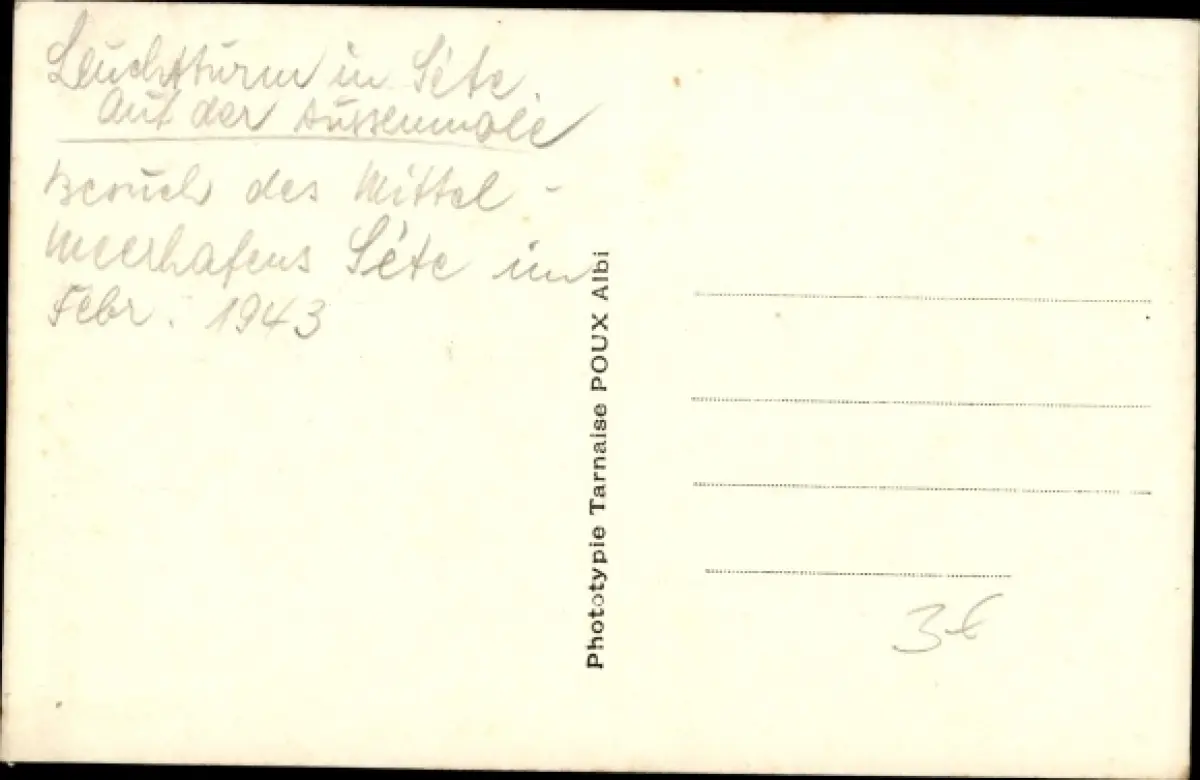 Leuchtturm in Séte.
Auf der Aussenmole
Besuch des Mittel-
meerhafens Séte im
Febr. 1943
Phototypie Tarnaise POUX Albi
3€